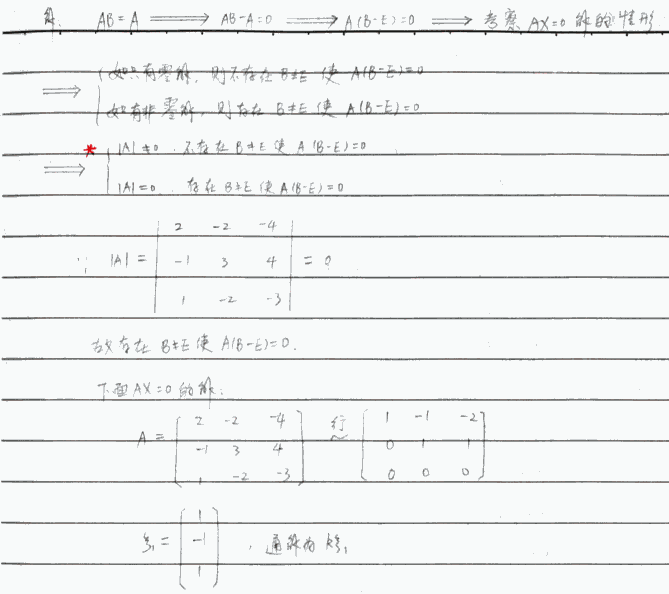 解: AB=A ⟹ AB-A=0 ⟹ A(B-E)=0 ⟹ 考察 AX=0 解的情形
⟹ { 如只有零解, 则不存在 B≠E 使 A(B-E)=0
如有非零解, 则存在 B≠E 使 A(B-E)=0
* ⟹ { |A|≠0, 不存在 B≠E 使 A(B-E)=0
|A|=0, 存在 B≠E 使 A(B-E)=0
2 -2 -4
∵ |A| = -1 3 4 = 0
1 -2 -3
故存在 B≠E 使 A(B-E)=0.
下面 AX=0 的解:
2 -2 -4 行 1 -1 -2
A = -1 3 4 ~ 0 1 1
1 -2 -3 0 0 0
1
ξ₁ = -1 , 通解为 kξ₁
1